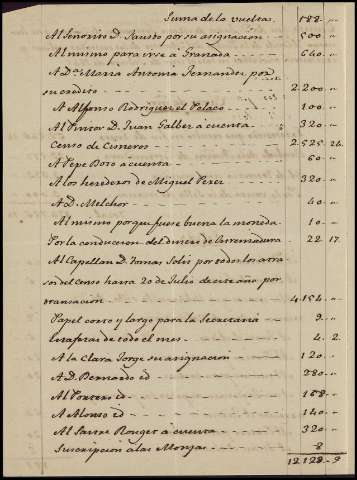 Suma de la vuelta. 188 "
Al Señorito D. Fausto por su asignación 500 "
Al mismo para irse á Granada 640 "
A D.ª Maria Antonia Fernandez por
su crédito 2.200 "
A Alfonso Rodriguez el Polaco 100 "
Al Pintor D. Juan Galber á cuenta 320 "
Censo de Cuneros 2.525 26
A Pepe Boto á cuenta 60 "
A los herederos de Miguel Perez 320 "
A D. Melchor 40 "
Al mismo porque fuese buena la moneda 10 "
Por la conduccion del dinero de Extremadura 22 17
Al Capellan D. Tomas Solis por todos los atra-
sos del censo hasta 20 de Julio de este año por
transacion 4.154 "
Papel corto y largo para la Secretaria 9 "
Estafetas de todo el mes 4 2
A la Clara Jorge su asignacion 120 "
A D. Bernardo id 280 "
Al Portero id 158 "
A Alonso id 140 "
Al Sastre Rouget á cuenta 320 "
Suscripcion a las Monjas 8
12.129 9